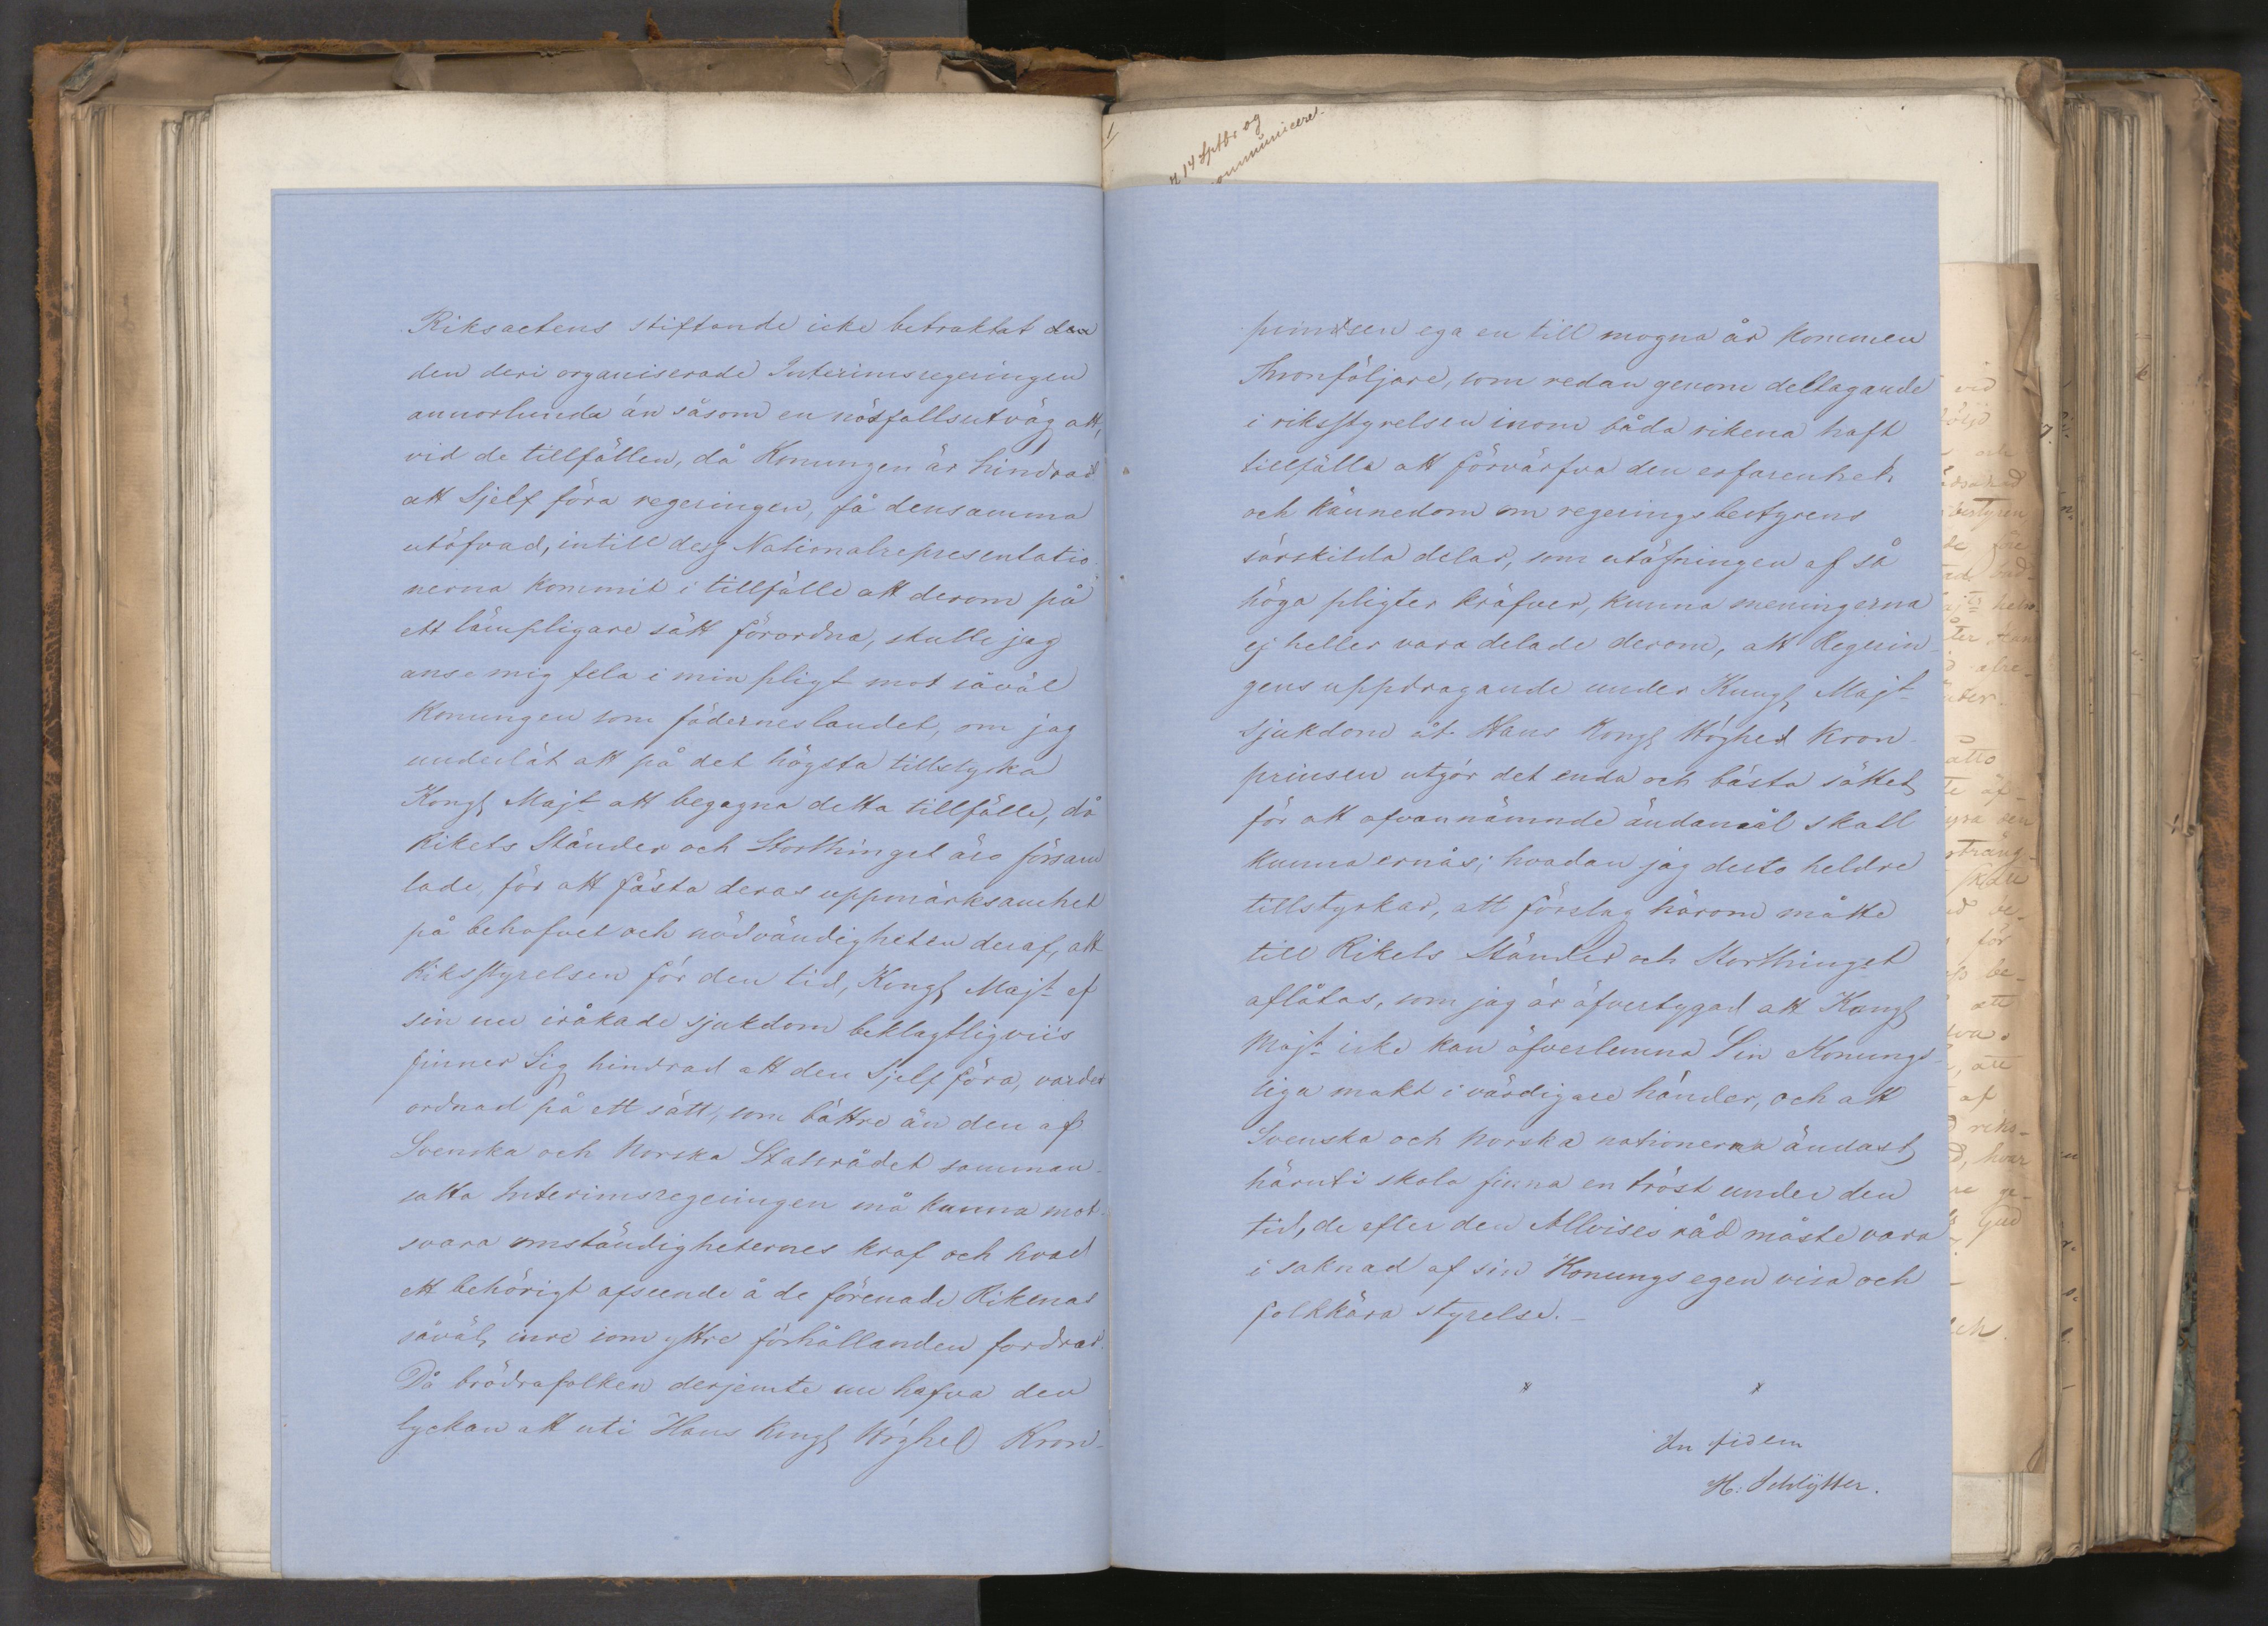 Riksactens stiftande icke betraktat
den deri organiserade Interimsregeringen
annorlunda än såsom en nödfallsutväg att,
vid de tillfällen, då Konungen är hindrad
att Sjelf föra regeringen, få densamma
utöfvad, intill dess Nationalrepresentatio-
nerna kommit i tillfälle att derom på
ett lämpligare sätt förordna, skulle jag
anse mig fela i min pligt mot såväl
Konungen som fäderneslandet, om jag
underlät att på det högsta tillstyrka
Kongl Majt att begagna detta tillfälle, då
Rikets Ständer och Storthinget äro försam
lade, för att fästa deras uppmärksamhet
på behofvet och nödvändigheten deraf, att
Riksstyrelsen för den tid, Kongl Majt af
sin nu iråkade sjukdom beklagtligviis
finner Sig hindrad att den Sjelf föra, varder
ordnad på ett sätt, som bättre än den af
Svenska och Norska Statsrådet samman-
satta Interimsregeringen må kunna mot-
svara omständigheternes kraf och hvad
ett behörigt afseende å de förenade Rikenas
såväl inre som yttre förhållanden fordrar.
Då brödrafolken derjemte nu hafva den
lyckan att uti Hans Kongl Höghet Kron-
14 Septbr og
prindsen ega en till mogna år kommen
Thronföljare, som redan genom deltagande
i riksstyrelsen inom båda rikena haft
tillfälle att förvärfva den erfarenhet
och kännedom om regeringsbestyrens
särskilda delar, som utöfningen af så
höga pligter kräfver, kunna meningarna
ej heller vara delade derom, att Regerin-
gens uppdragande under Kungl Majt
sjukdom åt Hans Kongl Höghet Kron-
prinsen utgör det enda och bästa sättet
för att ofvannämnde ändamål skall
kunna ernås; hvadan jag desto heldre
tillstyrkar, att förslag härom måtte
till Rikets Ständer och Storthinget
aflåtas, som jag är öfvertygad att Kungl
Majt icke kan öfverlemna Sin Konungs-
liga makt i värdigare händer, och att
Svenska och Norska nationerna ändast
häruti skola finna en tröst under den
tid, de efter den Allvises råd måste vara
i saknad af sin Konungs egen visa och
folkkära styrelse.
In fidem
H. Schlytter.